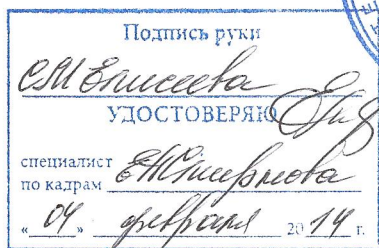 Подпись руки
СМ Елисеева
УДОСТОВЕРЯЮ
специалист
по кадрам ЕЖСмирнова
« 04 » февраля 2014 г.